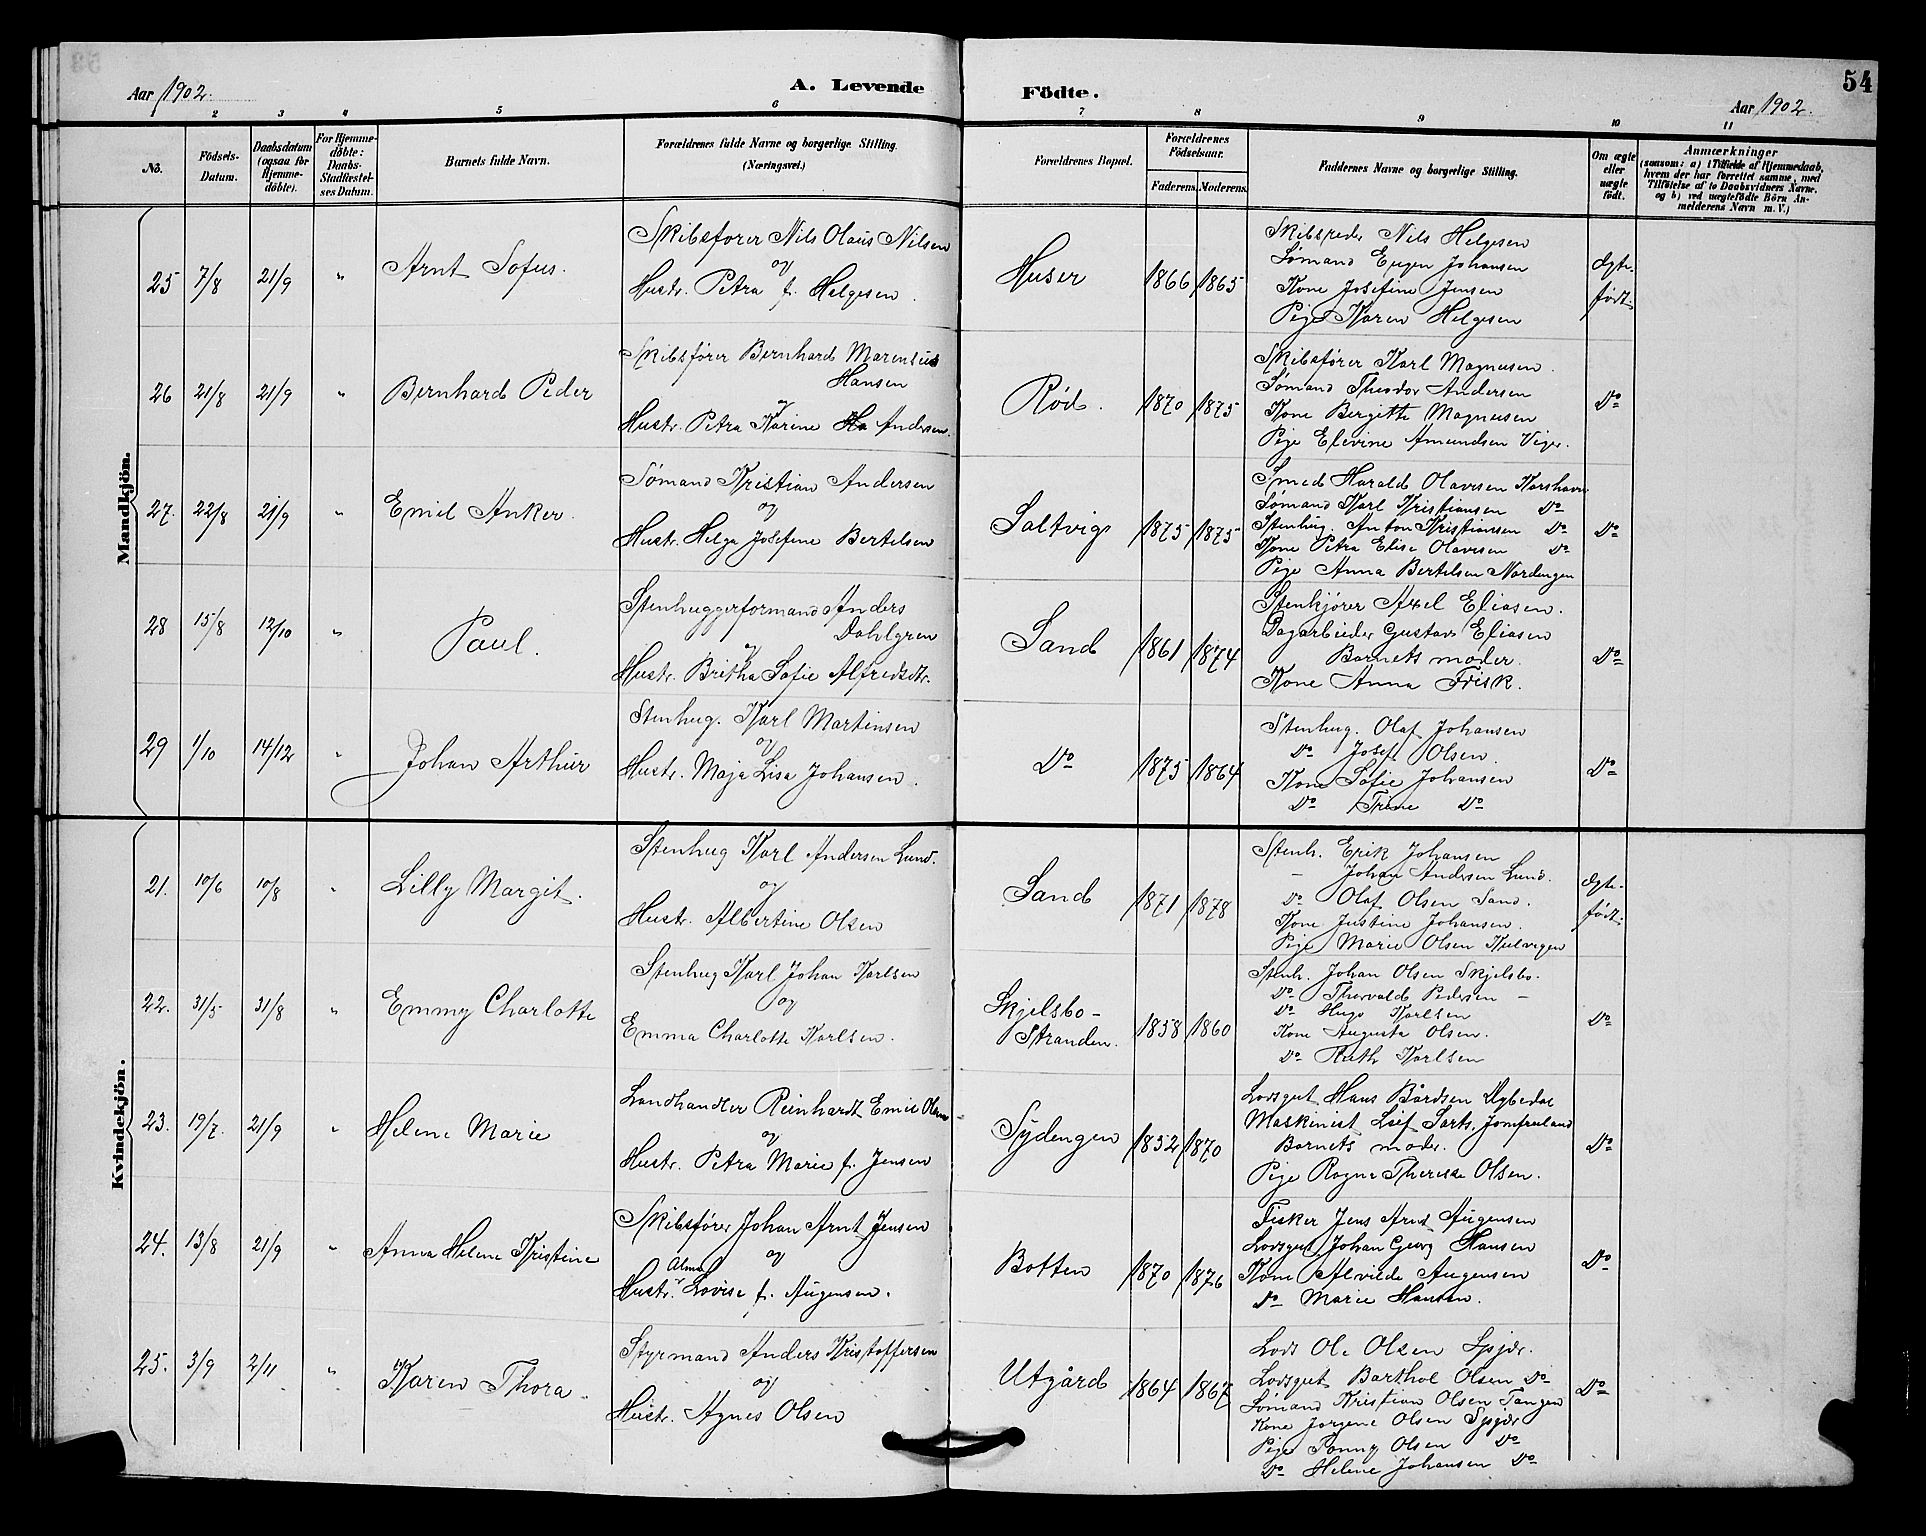 54
Aar 1902.
A. Levende Födte.
Aar 1902.
1 2 3 4 5 6 7 8 9 10 11
No.
Födsels-Datum.
Daabsdatum (ogsaa for Hjemmedöbte).
For Hjemmedöbte: Daabs-Stadfæstelses Datum.
Barnets fulde Navn.
Forældrenes fulde Navne og borgerlige Stilling.
(Næringsvei.)
Forældrenes Bopæl.
Forældrenes Födselsaar.
Faderens. Moderens.
Faddernes Navne og borgerlige Stilling.
Om ægte eller uægte født.
Anmærkninger
(saasom: a) i Tilfælde af Hjemmedaab, hvem der har forrettet samme, med Tilføielse af to Daabsvidners Navne, og b) ved uægtefødte Börn Anmelderens Navn m. V.)
Mandkjön.
25 7/8 21/9 " Arnt Sofus.
Skibsfører Nils Olaus Nilsen
og
Hustr. Petra f. Helgesen.
Huser 1866 1865
Skibsreder Nils Helgesen
Sømand Eugen Johansen
Kone Josefine Jensen
Pige Karen Helgesen
Ægte-
født.
26 21/8 21/9 " Bernhard Peder
Skibsfører Bernhard Marensius
Hansen
og
Hustr. Petra Karine Ha Andersen.
Rød. 1870 1875
Skibsfører Karl Magnusen.
Sømand Theodor Andersen
Kone Bergitte Magnusen
Pige Elevine Amundsen Viger.
Do
27. 22/8 21/9 " Emil Anker.
Sømand Kristian Andersen
og
Hustr. Helga Josefine Bertelsen
Saltvig 1875 1875
Smed Harald Olavesen Korshavn
Sømand Karl Kristiansen Do
Stenhug. Anton Kristiansen Do
Kone Petra Elise Olavesen Do
Pige Anna Bertelsen Nordengen
Do
28 15/8 12/10 " Paul.
Stenhuggerformand Anders
Dahlgren
og
Hustr. Britha Sofie Alfredsdtr.
Sand 1861 1874
Stenkjører Axel Eliasen.
Dagarbeider Gustav Eliasen
Barnets moder.
Kone Anna Frisk.
Do
29 1/10 14/12 " Johan Arthur
Stenhug. Karl Martinsen
og
Hustr. Maja Lisa Johansen.
Do 1875 1864
Stenhug. Olaf Johansen
Do Josef Olsen.
Kone Sofie Johansen
Do Trine Do
Do
Kvindekjön.
21. 10/6 10/8 " Lilly Margit.
Stenhug Karl Andersen Lund.
og
Hustr. Albertine Olsen
Sand 1871 1878
Stenh. Erik Johansen
– Johan Andersen Lund.
Do Olaf Olsen Sand.
Kone Justine Johansen.
Pige Marie Olsen Kulvigen
Ægte-
født.
22. 31/5 31/8 " Emmy Charlotte
Stenhug Karl Johan Karlsen
og
Emma Charlotte Karlsen.
Skjelsbo-
Stranden. 1858 1860
Stenh. Johan Olsen Skjelsbo.
Do Thorvald Pedersen –
Do Hugo Karlsen
Kone Augusta Olsen.
Do Ruth Karlsen
Do
23. 19/7. 21/9 " Helene Marie
Landhandler Reinhardt Emil Olsen
og
Hustr. Petra Marie f. Jensen
Sydengen 1852 1870
Lodsgut Hans Bårdsen Dybedal
Maskinist Leif Jomfruland
Barnets moder.
Pige Ragna Therese Olsen.
Do
24. 13/8 21/9 " Anna Helene Kristine
Skibsfører Johan Arnt Jensen
og
Alma
Hustr. Lovise f. Augensen.
Botten 1870 1876
Fisker Jens Arnt Augensen
Lodsgut Johan Georg Hansen
Kone Alvilde Augensen
Do Marie Hansen.
Do
25. 3/9 2/11 " Karen Thora.
Styrmand Anders Kristoffersen
og
Hustr. Agnes Olsen
Utgård 1864 1867
Lods Ole Olsen Spjær.
Lodsgut Barthol Olsen Do
Sømand Kristian Olsen Tangen
Kone Jørgine Olsen Spjær
Pige Olsen Do
Do Helene Johansen Do
Do